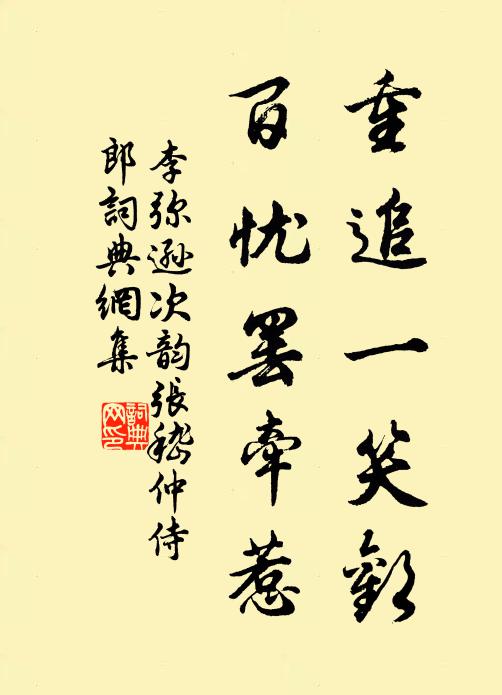 重追一笑歡
百忧罢牵惹
李弥遜次韵張嵇仲侍
郎詞典網集
詞典
网印